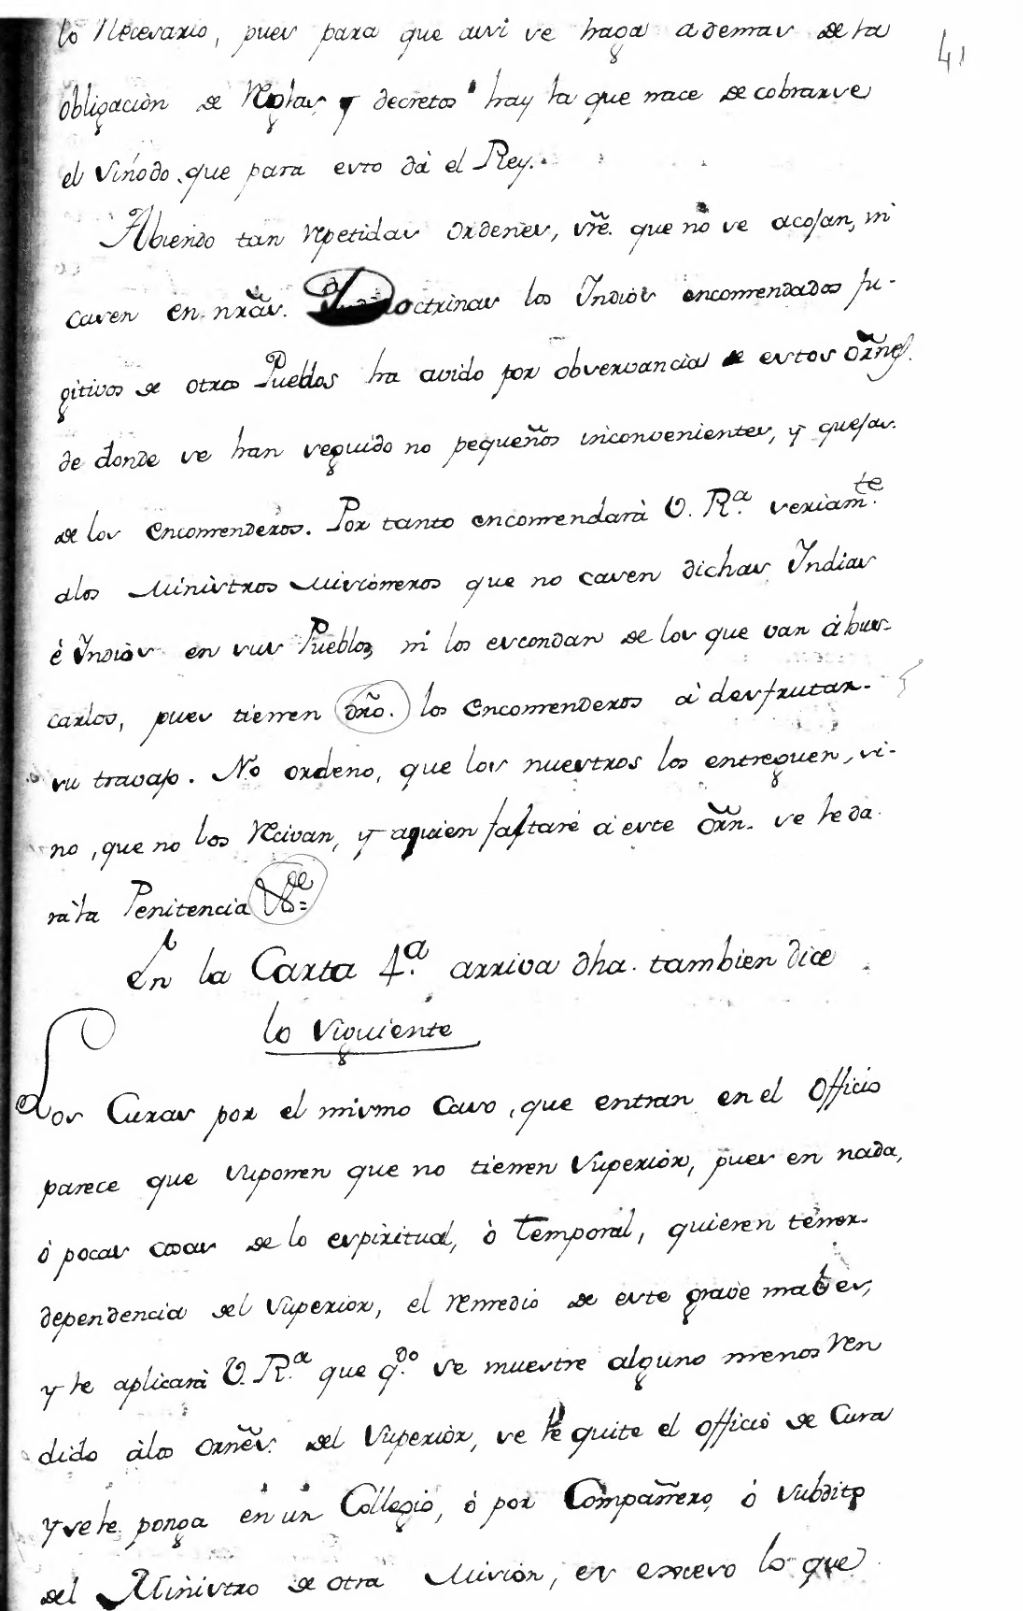 lo Necesario, pues para que assi se haga ademas de la
41
obligaciòn de Reglas, y decretos hay la que nace de cobrarse
el Sínodo que para esto dà el Rey.
Abiendo tan repetidas Ordenes, sr̃e. que no se acojan, ni
casen en nr̃as. Doctrinas los Indios encomendados fu-
gitivos de otros Pueblos ha avido por observancia de estos or̃nes.
de donde se han seguido no pequeños inconvenientes, y quejas.
de los Encomenderos. Por tanto encomendarà V. R.ª seriam.te
alos Ministros Missioneros que no casen dichas Indias
è Indios en sus Pueblos, ni los escondan de los que van à bus-
carlos, pues tienen dr̃o. los Encomenderos à desfrutar-
su travajo. No ordeno, que los nuestros los entreguen, si-
no, que no los Recivan, y aquien faltare à este Or̃n. se le da
rà la Penitencia 8.de =
en la Carta 4.ª arriva dha. tambien dice
lo Siguiente
Los Curas por el mismo Caso, que entran en el Officio
parece que suponen que no tienen Superiòr, pues en nada,
ò pocas cosas de lo espiritual, ò Temporàl, quieren tener
dependencia del Superior, el remedio de este grave mal es,
y le aplicarà V. R.ª que q.do se muestre alguno menos Ren
dido àlas orñes. del Superiòr, se le quite el officio de Cura
y se le ponga en un Collegio, ò por Compañero, ò Subdito
del Ministro de otra Missiòn, es excesso lo que